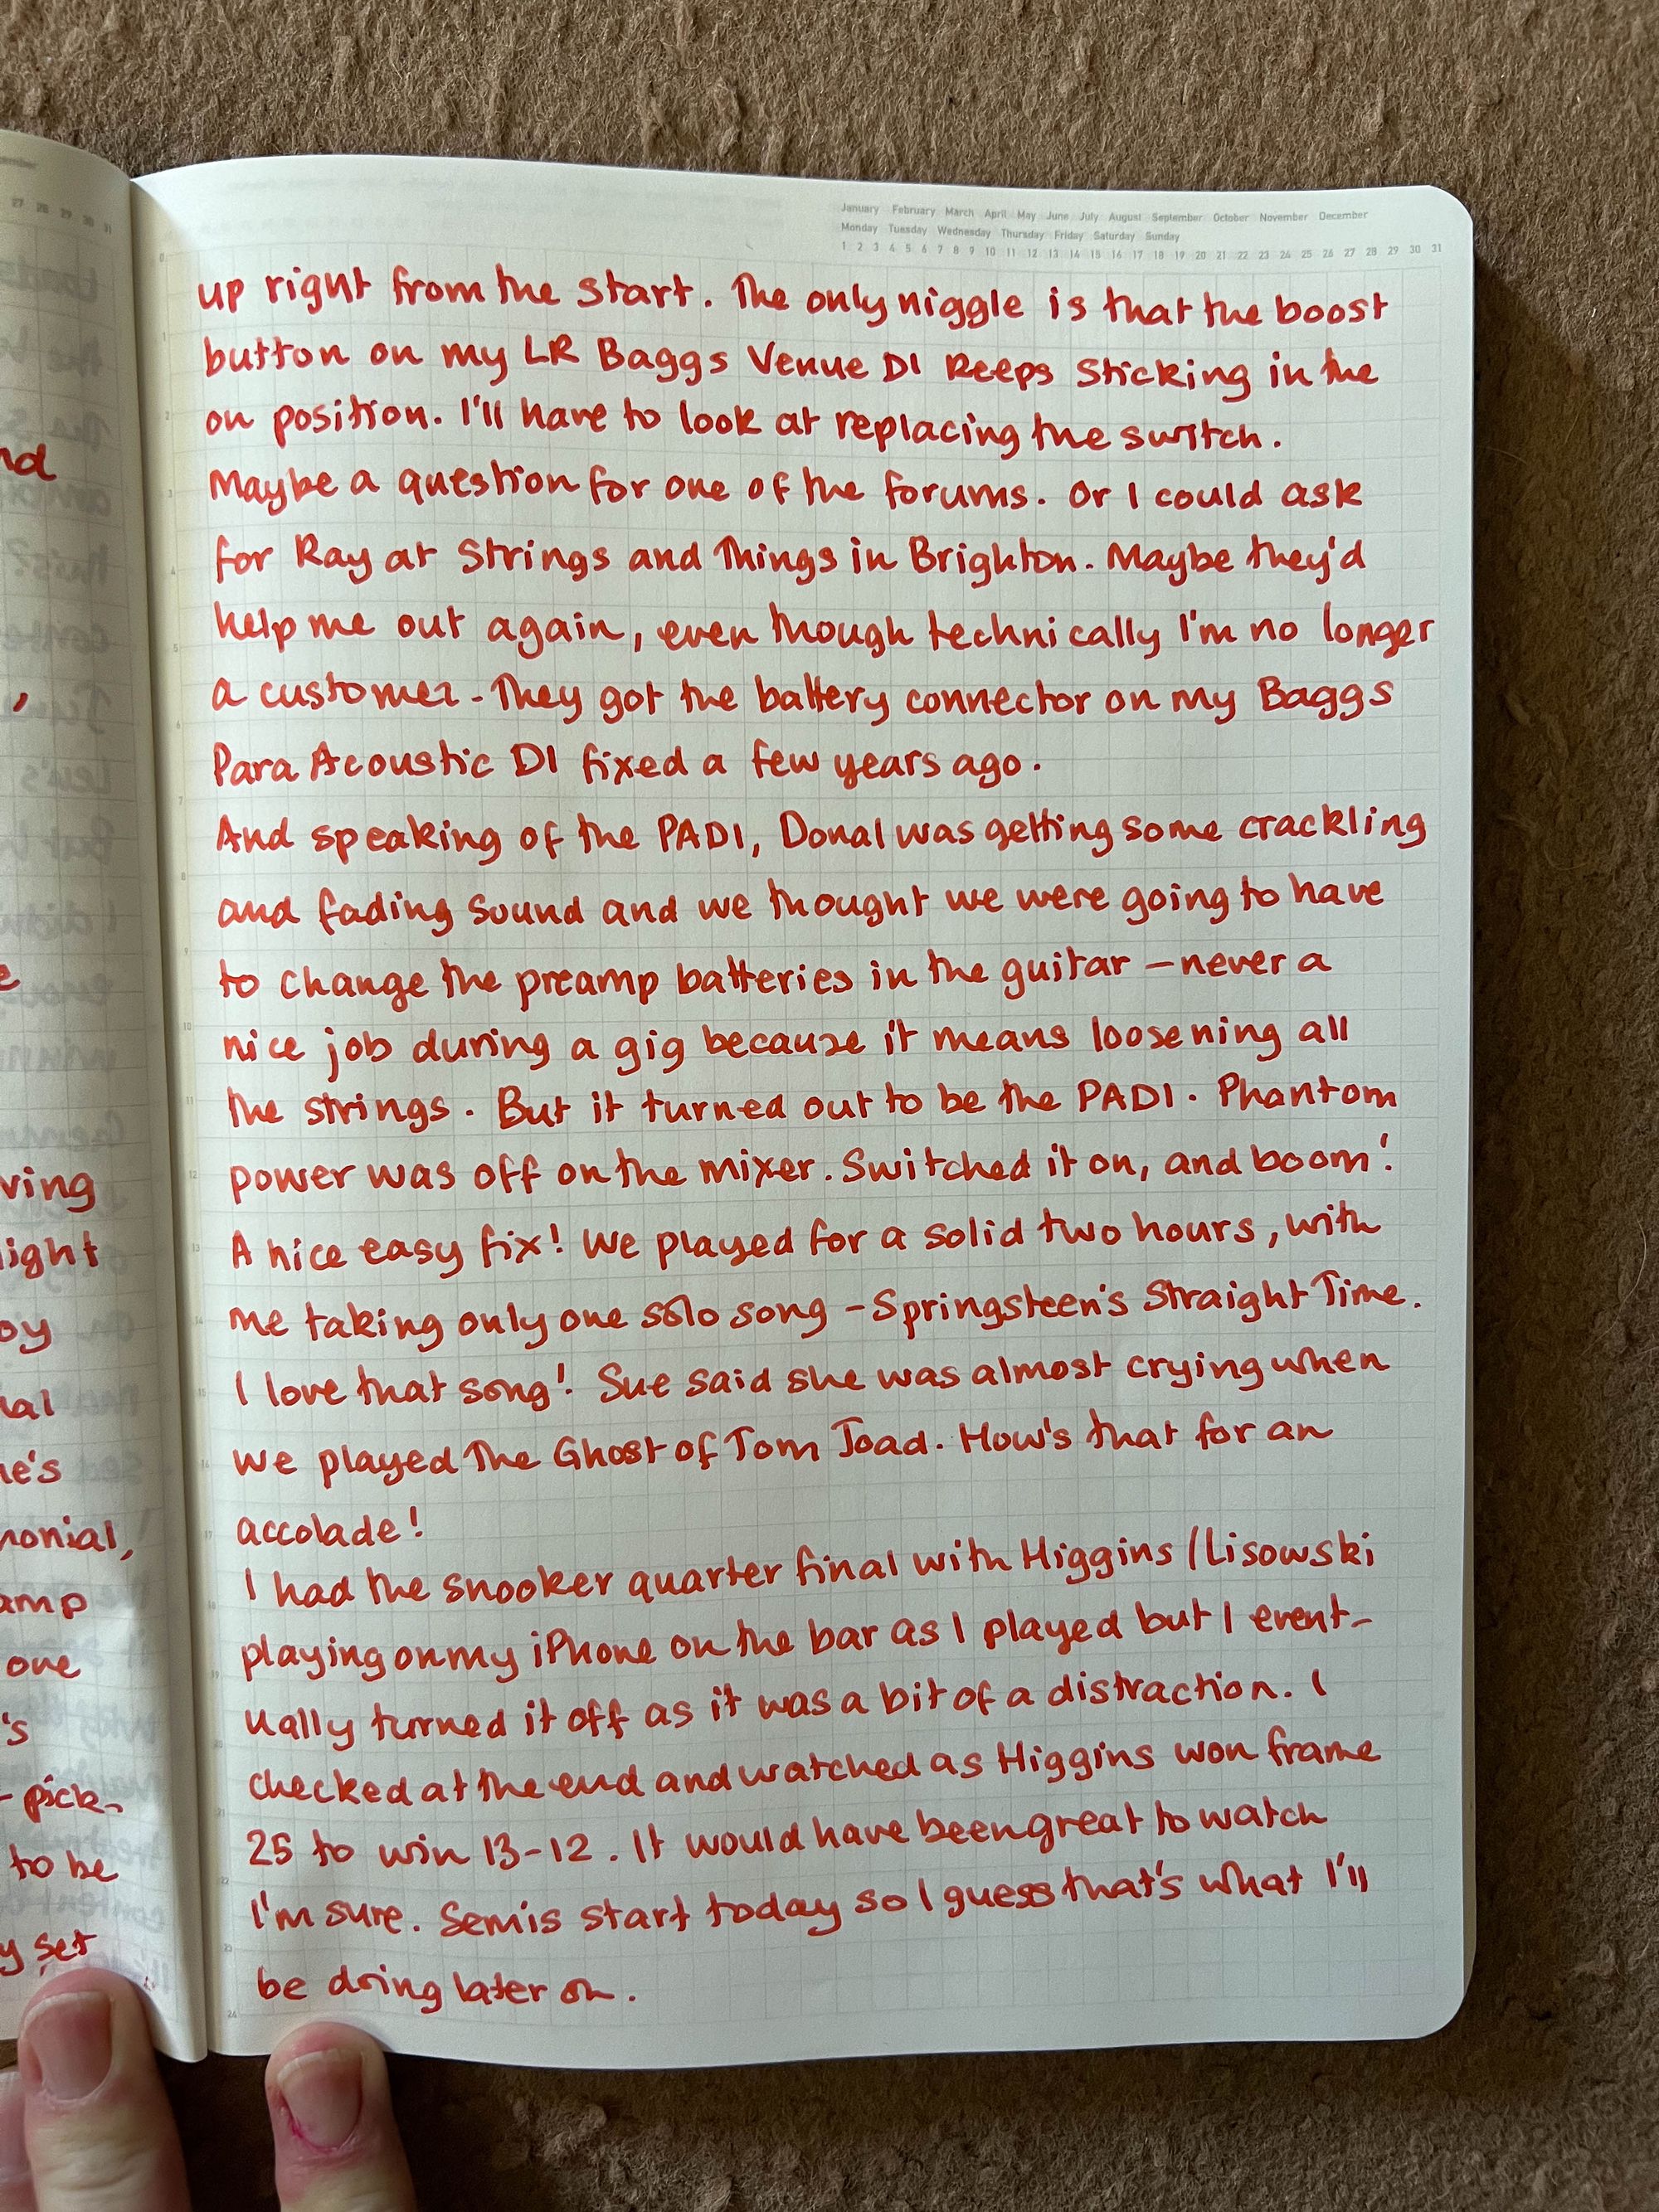 January February March April May June July August September October November December
Monday Tuesday Wednesday Thursday Friday Saturday Sunday
1 2 3 4 5 6 7 8 9 10 11 12 13 14 15 16 17 18 19 20 21 22 23 24 25 26 27 28 29 30 31
up right from the start. The only niggle is that the boost
button on my LR Baggs Venue DI keeps sticking in the
on position. I'll have to look at replacing the switch.
Maybe a question for one of the forums. Or I could ask
for Ray at Strings and Things in Brighton. Maybe they'd
help me out again, even though technically I'm no longer
a customer. They got the battery connector on my Baggs
Para Acoustic DI fixed a few years ago.
And speaking of the PADI, Donal was getting some crackling
and fading sound and we thought we were going to have
to change the preamp batteries in the guitar – never a
nice job during a gig because it means loosening all
the strings. But it turned out to be the PADI. Phantom
power was off on the mixer. Switched it on, and boom!
A nice easy fix! We played for a solid two hours, with
me taking only one solo song – Springsteen's Straight Time.
I love that song! Sue said she was almost crying when
we played The Ghost of Tom Joad. How's that for an
accolade!
I had the snooker quarter final with Higgins / Lisowski
playing on my iPhone on the bar as I played but I event-
ually turned it off as it was a bit of a distraction. I
checked at the end and watched as Higgins won frame
25 to win 13-12. It would have been great to watch
I'm sure. Semis start today so I guess that's what I'll
be doing later on.